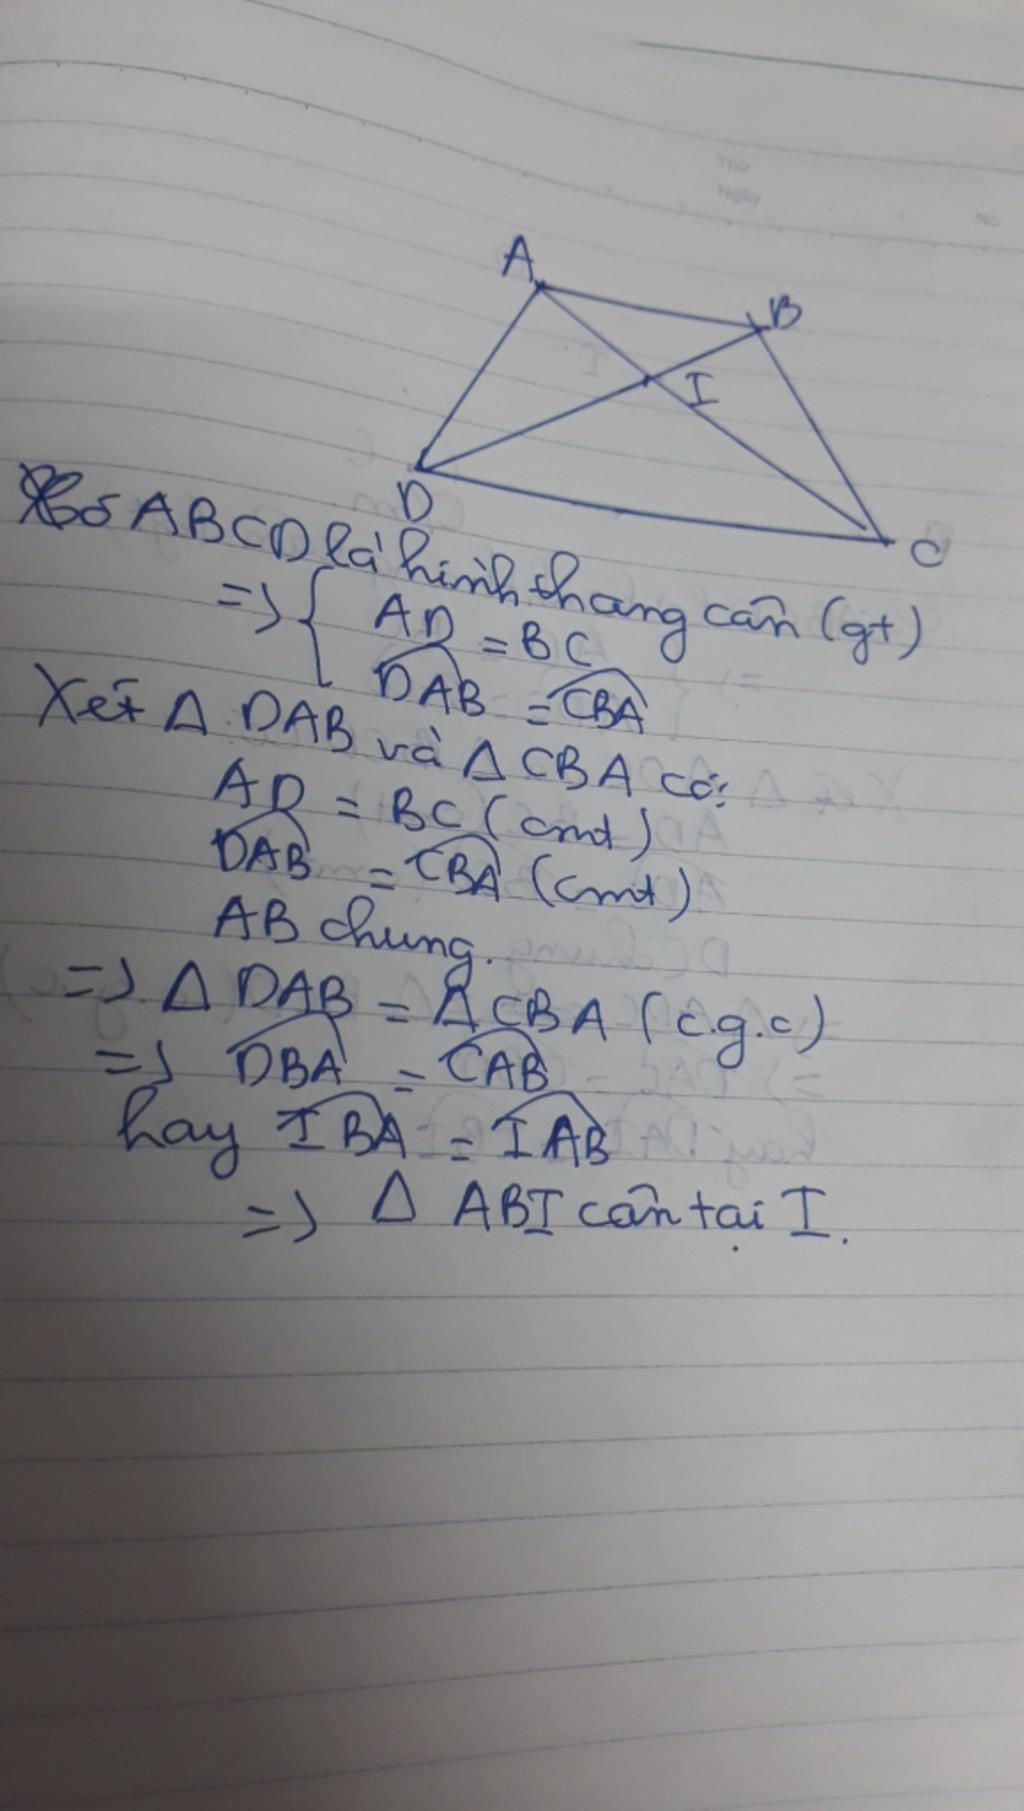 Thứ
Ngày
No
A
B
I
D
C
Có ABCD là hình thang cân (gt)
=> { AD = BC
DAB = CBA
Xét Δ DAB và Δ CBA có:
AD = BC (cmt)
DAB = CBA (cmt)
AB chung.
=> Δ DAB = Δ CBA (c.g.c)
=> DBA = CAB
hay IBA = IAB
=> Δ ABI cân tại I.